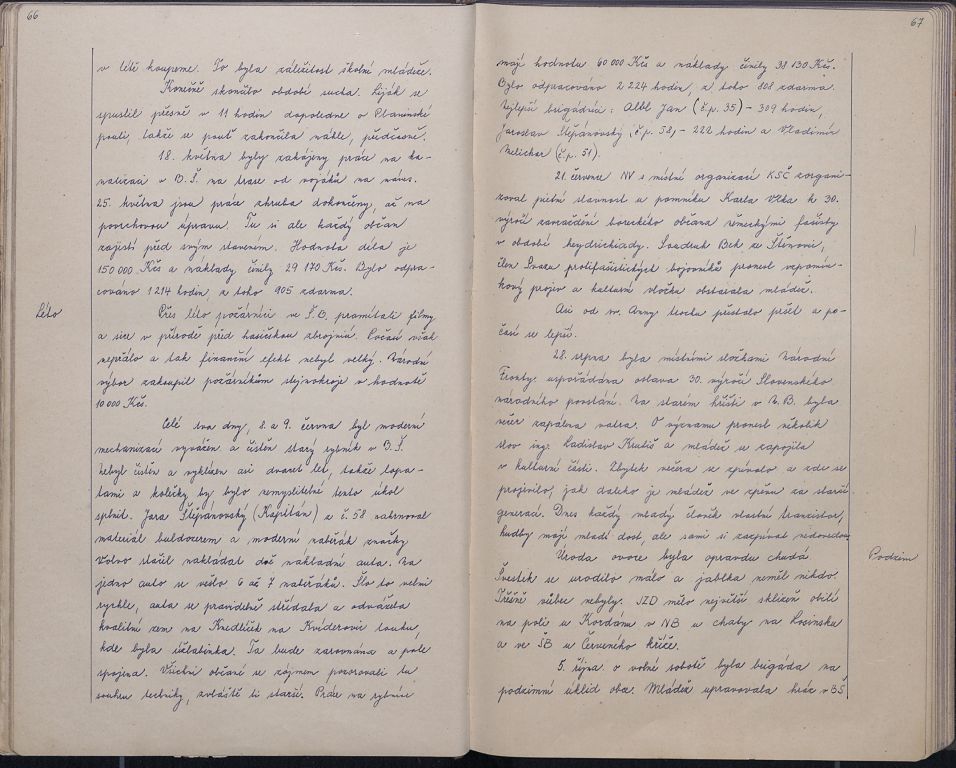 66
v létě koupeme. To byla záležitost školní mládeže.
Konečně skončilo období sucha. Liják se
spustil přesně v 11 hodin dopoledne o
pouti, takže se pouť zakončila náhle, předčasně.
18. května byly zahájeny práce na ka-
nalizaci v B.Š. na trase od vojáků na náves.
25. května jsou práce zhruba dokončeny, až na
povrchovou úpravu. Tu si ale každý občan
zajistí před svým stavením. Hodnota díla je
150 000 Kčs a náklady činily 29 170 Kčs. Bylo odpra-
cováno 1214 hodin, z toho 905 zdarma.
Léto
Přes léto požárníci ve Š.B. promítali filmy
a sice v přírodě před hasičskou zbrojnicí. Počasí však
nepřálo a tak finanční efekt nebyl velký. Národní
výbor zakoupil požárníkům stejnokroje v hodnotě
10 000 Kčs.
Celé dva dny, 8. a 9. června byl moderní
mechanizací vyvážen a čištěn starý rybník v B.Š.
Nebyl čištěn a vyklízen asi dvacet let, takže lopa-
tami a kolečky by bylo nemyslitelné tento úkol
splnit. Jara Štěpánovský (Kapitán) z č. 58 nahrnoval
materiál buldozerem a moderní naběrák značky
Volvo stačil nakládat dvě nákladní auta. Na
jedno auto se vešlo 6 až 7 naběráků. Šlo to velmi
rychle, auta se pravidelně střídala a odvážela
kvalitní zem na Knedlíček na Kvíderovic louku,
kde byla úžlabinka. Ta bude zarovnána a pole
spojena. Všichni občané se zájmem pozorovali tu
souhru techniky, zvláště ti starší. Práce na rybníce
67
mají hodnotu 60 000 Kčs a náklady činily 38 130 Kčs.
Bylo odpracováno 2 224 hodin, z toho 808 zdarma.
Nejlepší brigádníci: Albl Jan (č.p. 35) - 309 hodin,
Jaroslav Štěpánovský (č.p. 58) - 222 hodin a Vladimír
Melichar (č.p. 51).
21. července NV s místní organizací KSČ zorgani-
zoval pietní slavnost u pomníku Karla Vlka k 30.
výročí zavraždění boreckého občana německými fašisty
v období heydrichiády. Soudruh Bek ze Štěnovic,
člen Svazu protifašistických bojovníků pronesl vzpomín-
kový projev a kulturní vložku obstarala mládež.
Asi od sv. Anny trochu přestalo pršet a po-
časí se lepší.
28. srpna byla místními složkami Národní
Fronty uspořádána oslava 30. výročí Slovenského
národního povstání. Na starém hřišti v N.B. byla
večer zapálena vatra. O významu pronesl několik
slov ing. Ladislav Krutiš a mládež se zapojila
v kulturní části. Zbytek večera se zpívalo a zde se
projevilo, jak daleko je mládež ve zpěvu za starší
generací. Dnes každý mladý člověk vlastní tranzistor,
hudby mají mladí dost, ale sami si zazpívat nedovedou.
Podzim
Úroda ovoce byla opravdu chudá
Švestek se urodilo málo a jablka neměl nikdo.
Třešně vůbec nebyly. JZD mělo největší sklizeň obilí
na poli u Kordám v NB u chaty na Losinsku
a ve ŠB u Červeného kříže.
5. října o volné sobotě byla brigáda na
podzimní úklid obce. Mládež upravovala hráz v BŠ